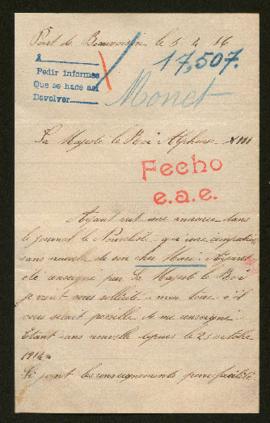 Pont de Beauvoisin le 5 4 16
17,507.
A
Pedir informes
Que se hace así
Devolver
Monet
Sa Majesté le Roi Alphonse XIII
Fecho
e.a.e.
Ayant vu une annonce dans
le journal le Nouvelliste, que une
sans nouvelle de son cher Mari. Ayant
été renseigné par Sa Majesté le Roi
je vient vous solliciter a mon tour s'il
vous serait possible de me renseigné
Etant sans nouvelle depuis le 25 octobre
1914
Ci joint les renseignements pour facilité